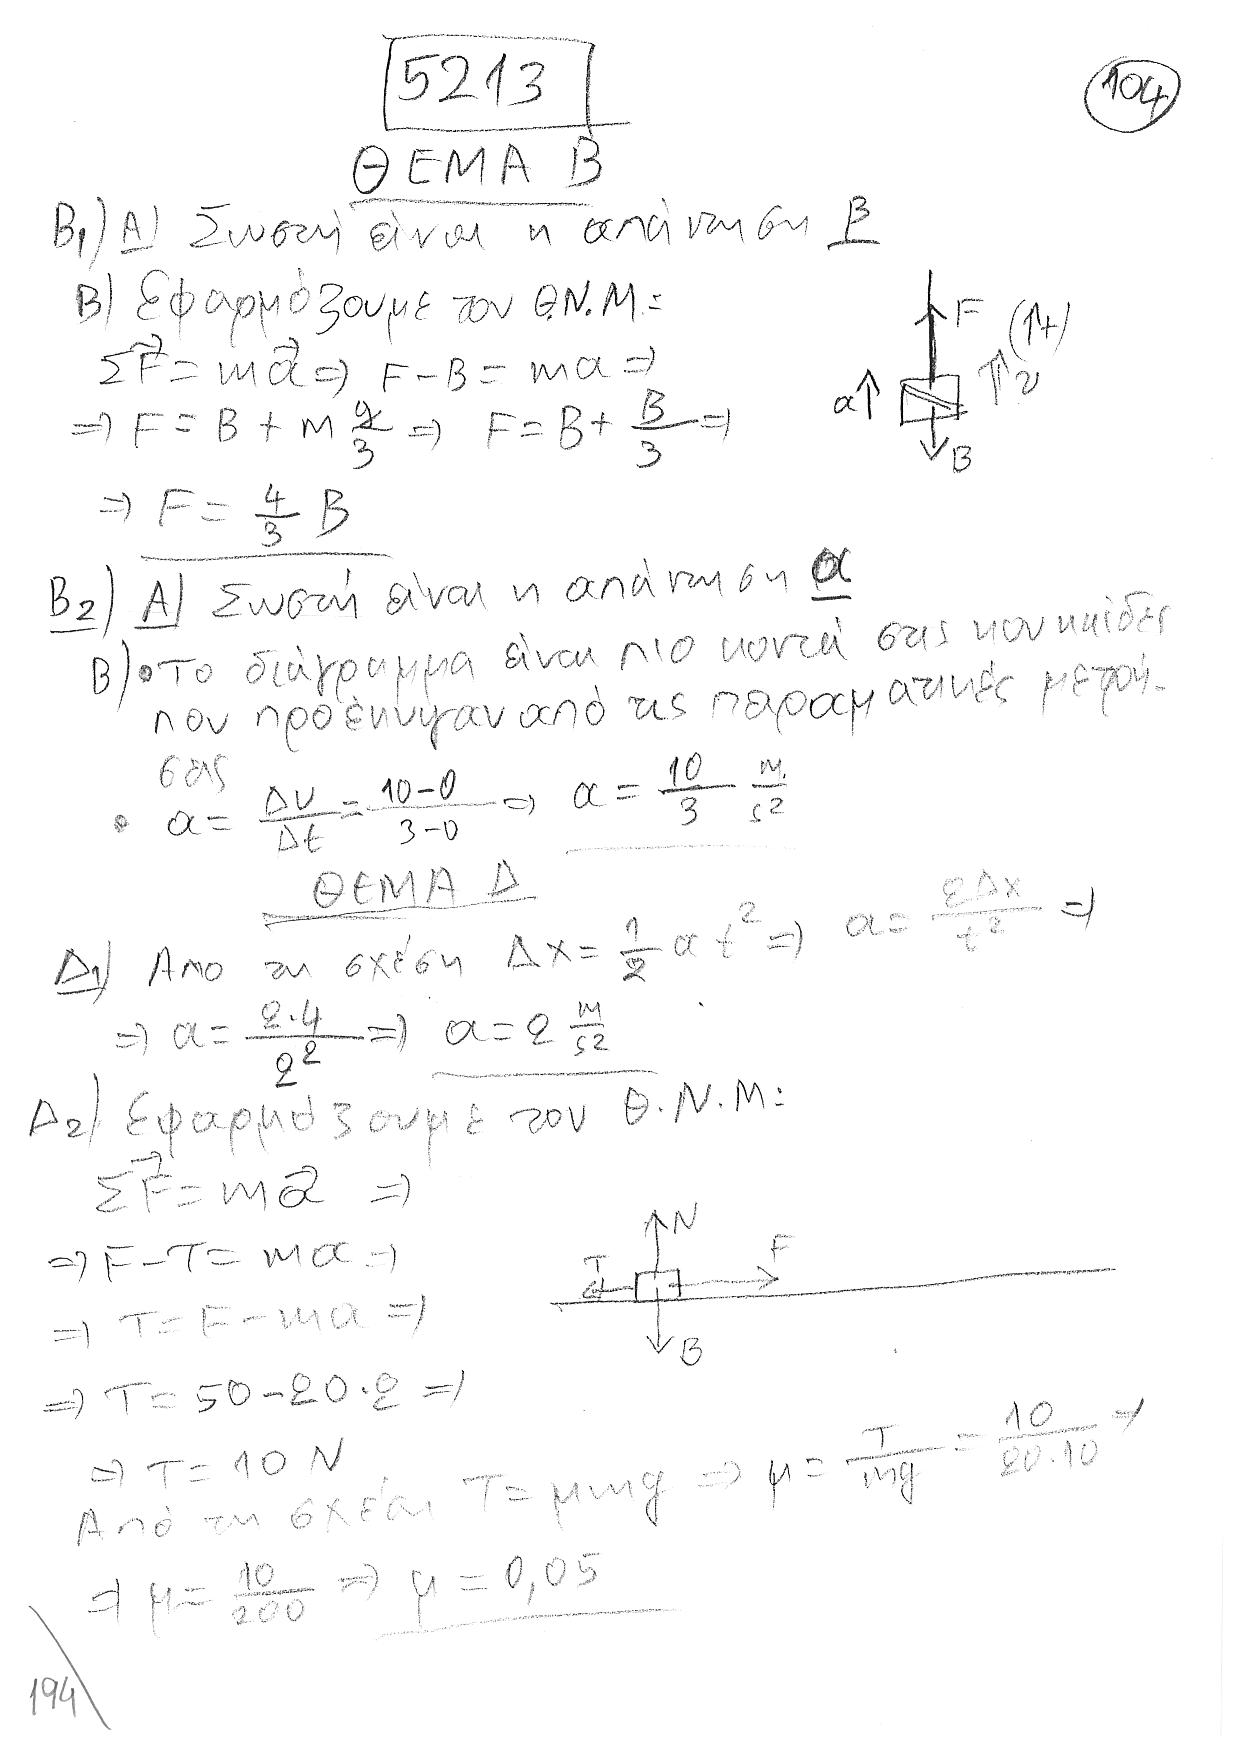 5213
104
ΘΕΜΑ Β
Β₁) Α) Σωστή είναι η απάντηση β
Β) Εφαρμόζουμε τον Θ.Ν.Μ.:
ΣF⃗ = mα⃗ ⇒ F - B = mα ⇒
⇒ F = B + m g/3 ⇒ F = B + B/3 ⇒
⇒ F = 4/3 B
F
(↑+)
α↑
↑υ
B
Β2) Α) Σωστή είναι η απάντηση α
Β) • Το διάγραμμα είναι πιο κοντά στις κουκκίδες
που προέκυψαν από τις πειραματικές μετρή-
σεις
• α = Δυ/Δt = 10-0/3-0 ⇒ α = 10/3 m/s2
ΘΕΜΑ Δ
Δ1) Απο τη σχέση Δx = 1/2 α t² ⇒ α = 2Δx/t² ⇒
⇒ α = 2·4/2² ⇒ α = 2 m/s2
Δ2) Εφαρμόζουμε τον Θ.Ν.Μ:
ΣF⃗ = mα⃗ ⇒
⇒ F - T = mα ⇒
⇒ T = F - mα ⇒
⇒ T = 50 - 20·2 ⇒
⇒ T = 10 N
N
T
F
B
Από τη σχέση T = μmg ⇒ μ = T/mg = 10/20·10 ⇒
⇒ μ = 10/200 ⇒ μ = 0,05
194